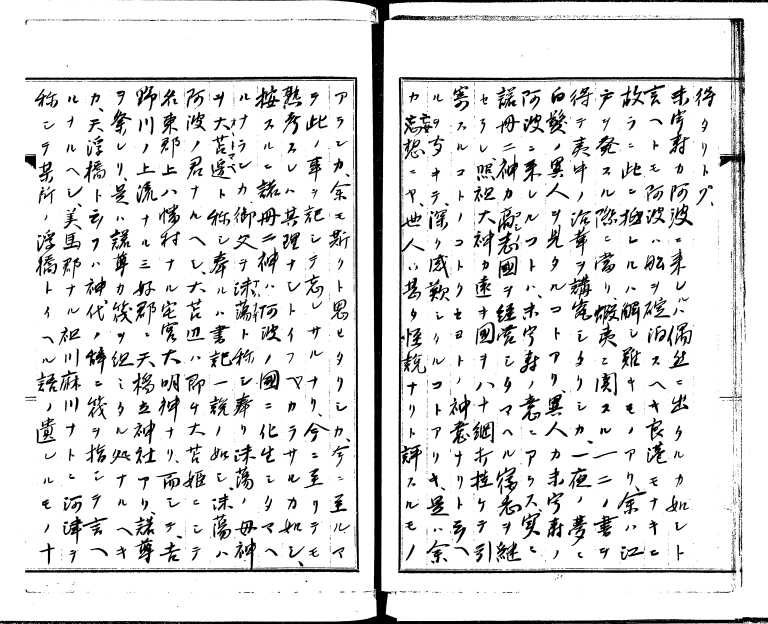 得タリトゾ、
未宇寿カ阿波ニ来レルハ偶然ニ出タルカ如シト
云ヘトモ阿波ハ船ヲ碇泊スヘキ良港モナキニ
故ラニ此ニ極レルハ解シ難キモノアリ、余ハ江
戸ヲ発スル際ニ當リ蝦夷ニ関スル一二ノ書ヲ
得テ夷中ノ沿革ヲ講究シタリシカ、一夜ノ夢ニ
白髪ノ異人ヲ見タルコトアリ、異人カ未宇寿ノ
阿波ニ来レルコトハ未宇寿ノ意ニアラス実ニ
諾冊二神カ高志國ヲ経営シタマヘル宿志ヲ継
セラレ照祖大神カ遠キ國ヲハナ綱打挂ケテ引
寄スルコトノコトクセヨトノ神意ナリト云ヘ
ルヲ方キテ、深ク感歎シタルコトアリキ、是ハ余
カ妄想ニヤ、世人ハ甚タ怪説ナリト評スルモノ
アランカ、余モ斯クト思セタリシカ、今ニ至ルマ
ヲ此ノ事ヲ記シテ忘レサルナリ、今ニ至リテモ
熟考スレハ其理ナシトイフヘカラサルカ如シ、
按スルニ諾冊二神ハ阿波ノ國ニ化生シタマヘ
ルナランカ御父ヲ沫蕩ト称シ奉リ沫蕩ノ母神
ヲ大苫邊ト称シ奉ルハ書記一説ノ如シ沫蕩ハ
阿波ノ君ナルヘシ、大苫辺ハ即ケ大苫姫ニシテ
名東郡上八幡村ナル宅宮大明神ナリ、而シテ、吉
野川ノ上流ナル三好郡ニ天橋立神社アリ、諾尊
ヲ祭レリ、是ハ諾尊カ筏ヲ組ミタル処ナルヘキ
カ、天浮橋ト云フハ神代ノ辞ニ筏ヲ指シテ言ヘ
ルナルヘシ、美馬郡ナル祖川麻川ナトニ河津ヲ
称シテ某所ノ浮橋トイヘル語ノ遺レルモノ十